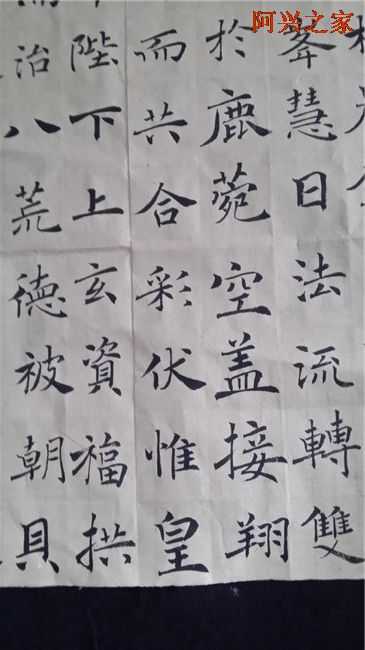 阿兴之家
峯慧日法流轉雙
於鹿菀空盖接翔
而共合彩伏惟皇
陛下上玄資福拱
治八荒德被朝貝